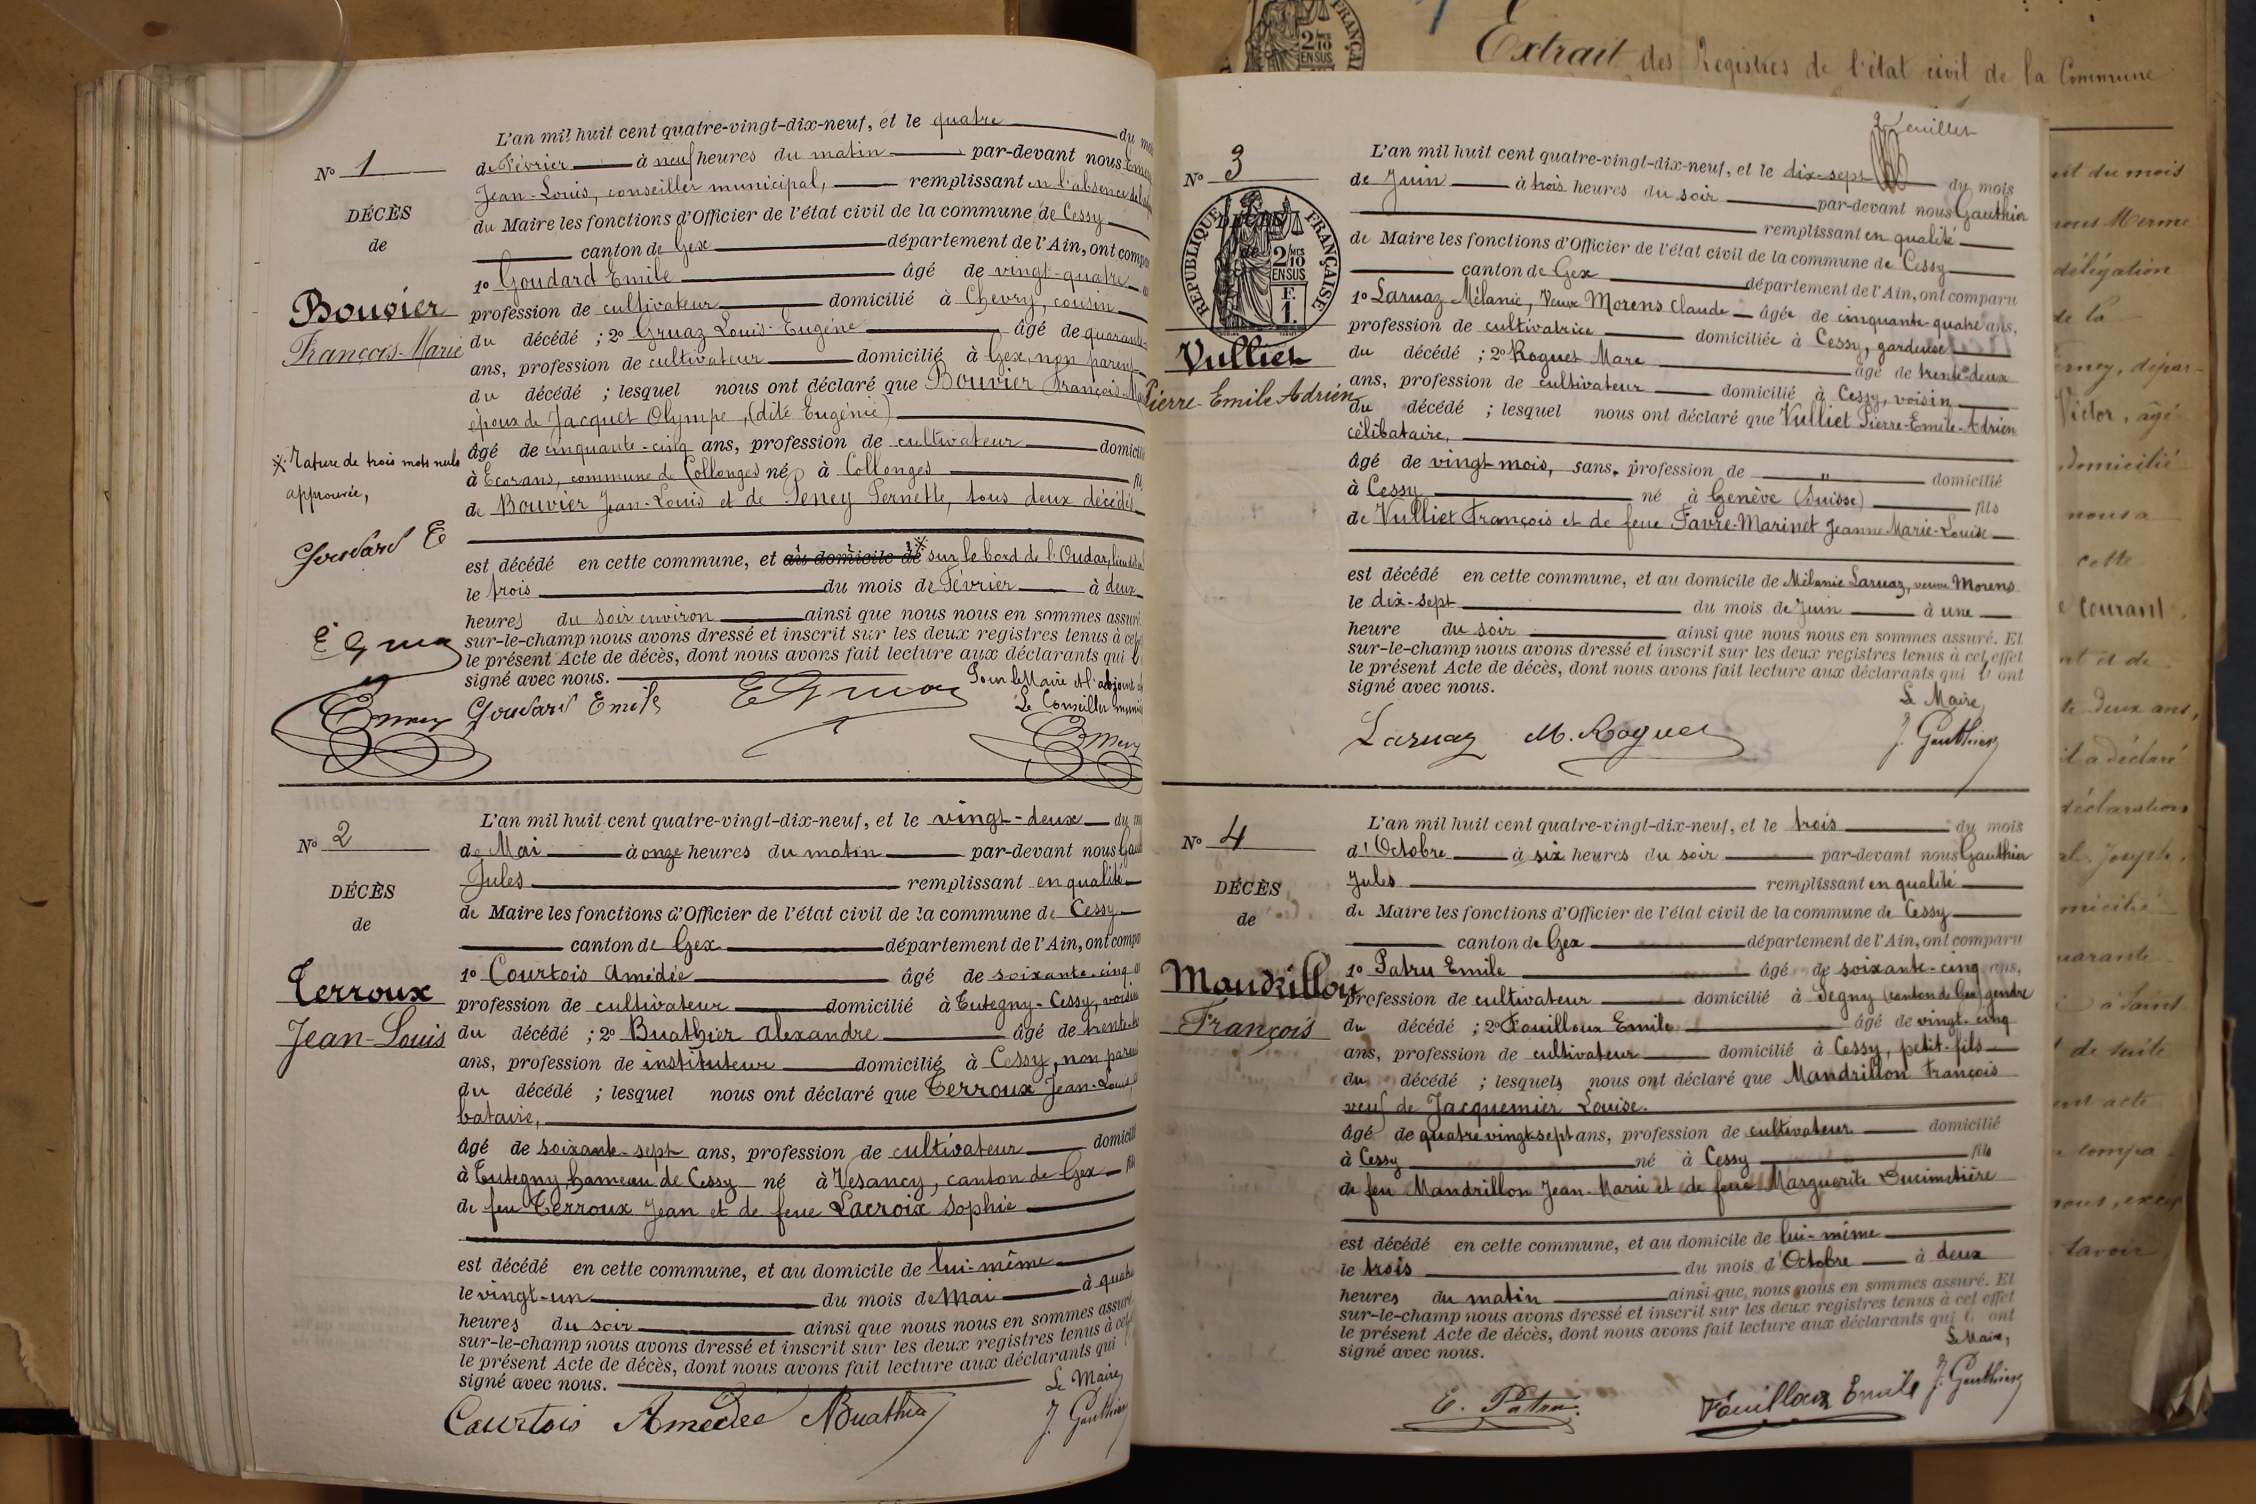 L'an mil huit cent quatre-vingt-dix-neuf, et le quatre du
No 1
de Février à neuf heures du matin par-devant nous
Jean-Louis, conseiller municipal, remplissant en l'absence
DÉCÈS
du Maire les fonctions d'Officier de l'état civil de la commune de Cessy
de
canton de Gex département de l'Ain, ont
1o Goudard Emile âgé de vingt-quatre
Bouvier
François-Marie
profession de cultivateur domicilié à Chevry, cousin
du décédé ; 2o Gruaz Louis-Eugène âgé de quarante-
ans, profession de cultivateur domicilié à Gex, non parent
du décédé ; lesquel nous ont déclaré que Bouvier François-
époux de Jacquet Olympe, (dite Eugénie)
âgé de cinquante-cinq ans, profession de cultivateur
※ Rature de trois mots nuls
approuvée,
à Ecorans, commune de Collonges né à Collonges
de Bouvier Jean-Louis et de Peney Pernette, tous deux décédés
Goudard E
est décédé en cette commune, et au domicile de ※ sur le bord de l'Oudar,
le trois du mois de Février à deux
heures du soir environ ainsi que nous nous en sommes assuré
sur-le-champ nous avons dressé et inscrit sur les deux registres tenus à
le présent Acte de décès, dont nous avons fait lecture aux déclarants qui
signé avec nous.
Pour le Maire et l'adjoint
Le Conseiller
Emery Goudard Emile E Gruaz
Emery
L'an mil huit cent quatre-vingt-dix-neuf, et le vingt-deux du
No 2
de Mai à onze heures du matin par-devant nous
Jules remplissant en qualité
DÉCÈS
de Maire les fonctions d'Officier de l'état civil de la commune de Cessy
de
canton de Gex département de l'Ain, ont
1o Courtois Amédée âgé de soixante-cinq
Terroux
Jean-Louis
profession de cultivateur domicilié à Tutegny-Cessy, voisin
du décédé ; 2o Buathier Alexandre âgé de
ans, profession de instituteur domicilié à Cessy, non
du décédé ; lesquel nous ont déclaré que Terroux Jean-Louis
bataire,
âgé de soixante-sept ans, profession de cultivateur
à Tutegny, hameau de Cessy né à Vesancy, canton de Gex
de feu Terroux Jean et de feue Lacroix Sophie
est décédé en cette commune, et au domicile de lui-même
le vingt-un du mois de Mai à
heures du soir ainsi que nous nous en sommes assuré
sur-le-champ nous avons dressé et inscrit sur les deux registres tenus à
le présent Acte de décès, dont nous avons fait lecture aux déclarants qui
signé avec nous.
Le Maire
Courtois Amédée ABuathier J. Gauthier
2 feuillet
L'an mil huit cent quatre-vingt-dix-neuf, et le dix-sept du mois
No 3
de Juin à trois heures du soir par-devant nous Gauthier
remplissant en qualité
DÉCÈS
de
RÉPUBLIQUE FRANÇAISE
2/10 MES
EN SUS
F.
1.
de Maire les fonctions d'Officier de l'état civil de la commune de Cessy
canton de Gex département de l'Ain, ont comparu
1o Laruaz Mélanie, Veuve Morens Claude âgée de cinquante-quatre ans,
profession de cultivatrice domiciliée à Cessy, gardeuse
Vulliet
Pierre-Emile Adrien
du décédé ; 2o Roguet Marc âgé de trente-deux
ans, profession de cultivateur domicilié à Cessy, voisin
du décédé ; lesquel nous ont déclaré que Vulliet Pierre-Emile-Adrien
célibataire,
âgé de vingt mois, sans profession de " domicilié
à Cessy né à Genève (Suisse) fils
de Vulliet François et de feue Favre-Marinet Jeanne-Marie-Louise
est décédé en cette commune, et au domicile de Mélanie Laruaz, veuve Morens
le dix-sept du mois de Juin à une
heure du soir ainsi que nous nous en sommes assuré. Et
sur-le-champ nous avons dressé et inscrit sur les deux registres tenus à cet effet
le présent Acte de décès, dont nous avons fait lecture aux déclarants qui ont
signé avec nous.
Le Maire,
Laruaz M. Roguet J. Gauthier
L'an mil huit cent quatre-vingt-dix-neuf, et le trois du mois
No 4
d'Octobre à six heures du soir par-devant nous Gauthier
Jules remplissant en qualité
DÉCÈS
de Maire les fonctions d'Officier de l'état civil de la commune de Cessy
de
canton de Gex département de l'Ain, ont comparu
1o Patru Emile âgé de soixante-cinq ans,
Mandrillon
François
profession de cultivateur domicilié à Segny (canton de Gex) gendre
du décédé ; 2o Fouilloux Emile âgé de vingt-cinq
ans, profession de cultivateur domicilié à Cessy, petit-fils
du décédé ; lesquels nous ont déclaré que Mandrillon François
veuf de Jacquemier Louise.
âgé de quatre vingt sept ans, profession de cultivateur domicilié
à Cessy né à Cessy fils
de feu Mandrillon Jean-Marie et de feue Marguerite Ducimetière
est décédé en cette commune, et au domicile de lui-même
le trois du mois d'Octobre à deux
heures du matin ainsi que nous nous en sommes assuré. Et
sur-le-champ nous avons dressé et inscrit sur les deux registres tenus à cet effet
le présent Acte de décès, dont nous avons fait lecture aux déclarants qui ont
signé avec nous.
Le Maire,
E. Patru Fouilloux Emile J. Gauthier
FRANÇAI
2/10 MES
EN SUS
Extrait des Registres de l'état civil de la Commune
du mois
nous Merme
délégation
de la
dépar-
Victor, âgé
domicilié
nous a
cette
courant,
et de
deux ans,
a déclaré
déclaration
Joseph,
micilié
quarante
à Saint
de suite
acte
compa
nous,
Savoir